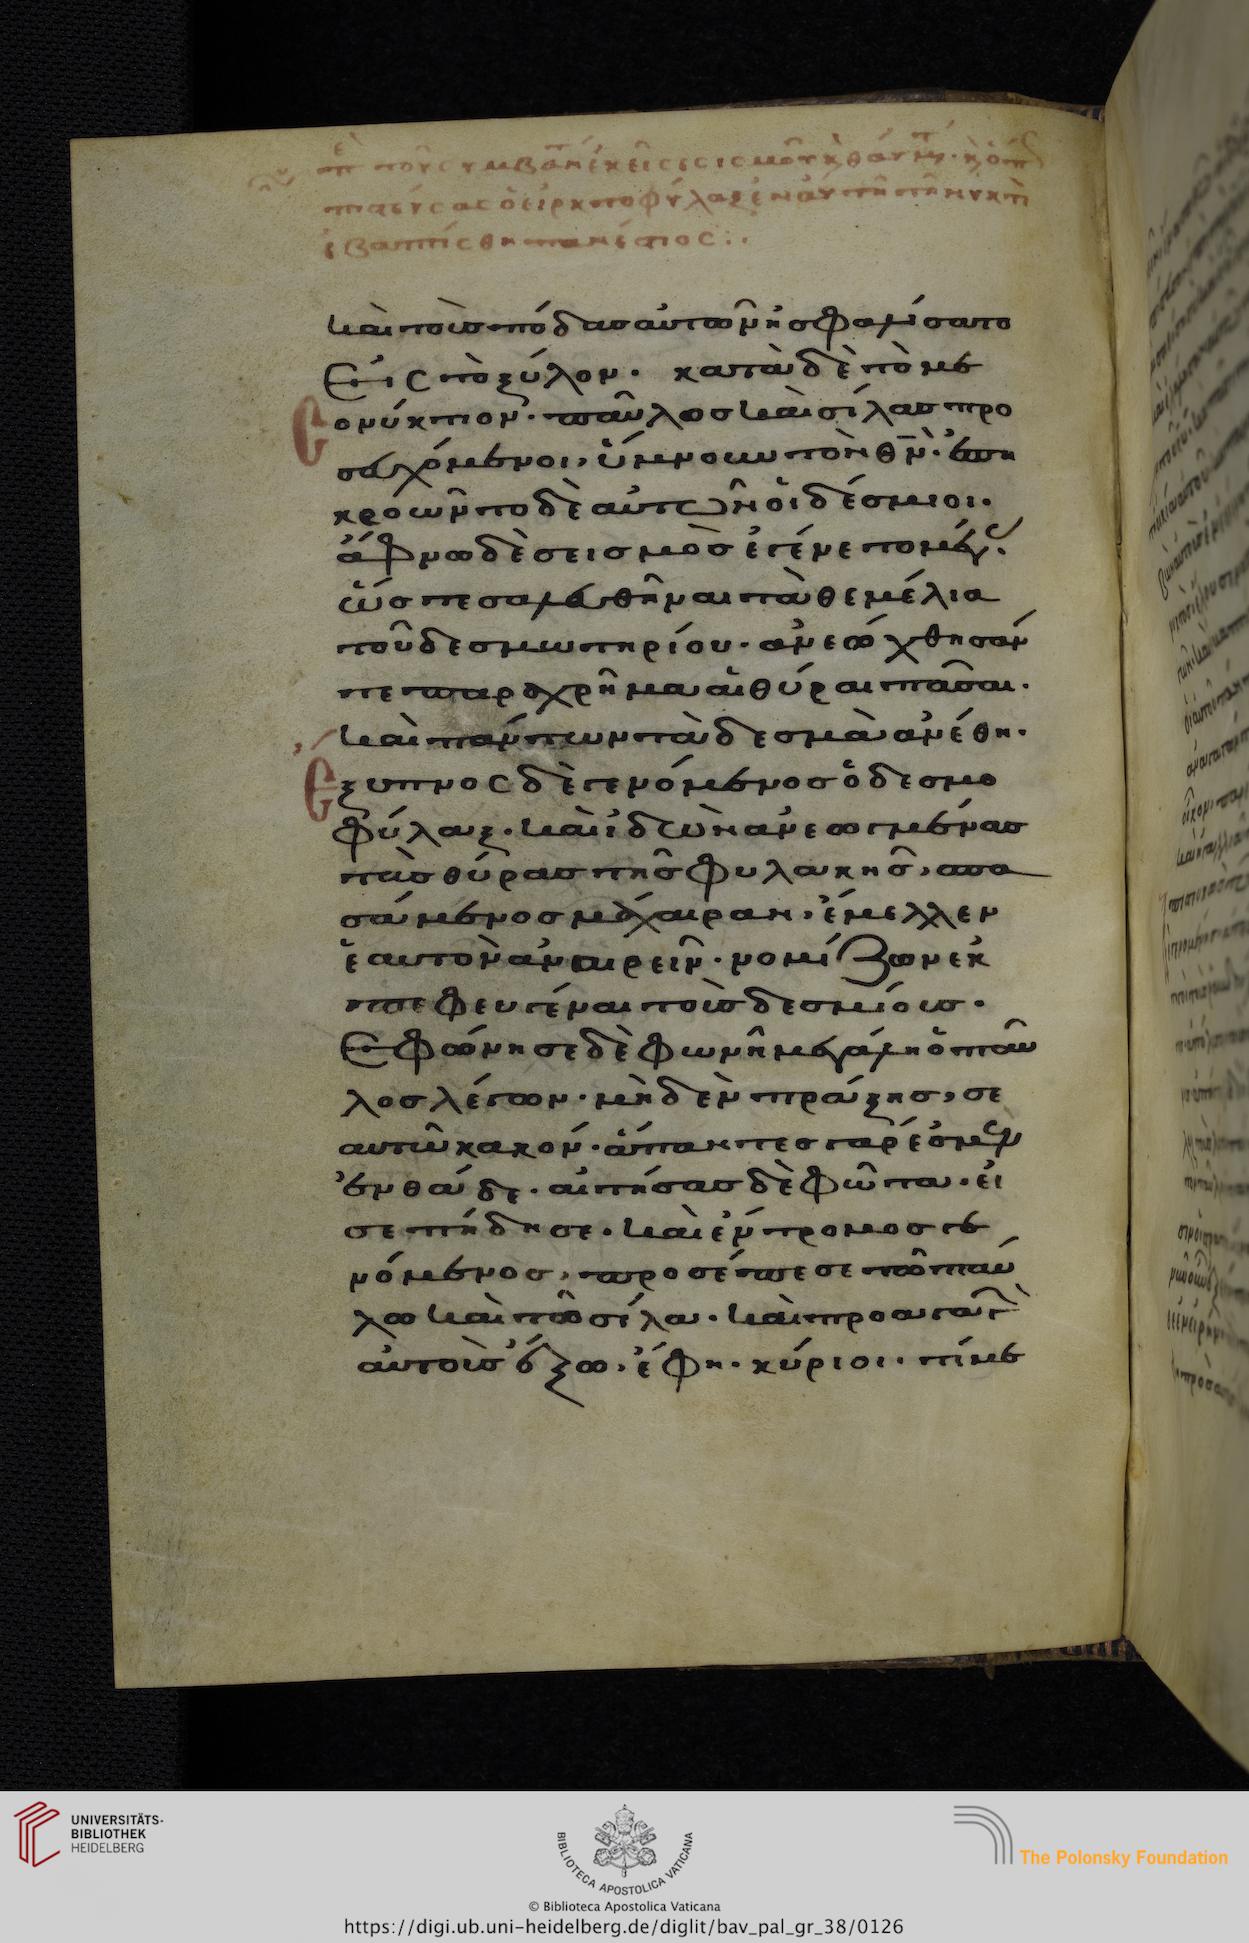 τοῦ συμβάντος ἐκεῖσε σεισμοῦ
πιστεύσας ὁ εἱρκτοφύλαξ ἐν αὐτῆ τῆ νυκτὶ
ἐβαπτίσθη πανέστιος :.
καὶ τοὺς πόδας αὐτῶν ἠσφαλίσατο
εἰς τὸ ξύλον. κατὰ δὲ τὸ με
σονύκτιον. παῦλος καὶ σίλας προ
σευχόμενοι, ὕμνουν τὸν θν̅. ἐπη
κροῶντο δὲ αὐτῶν οἱ δέσμιοι.
ἄφνω δὲ σεισμὸς ἐγένετο μέγας.
ὥστε σαλευθῆναι τὰ θεμέλια
τοῦ δεσμωτηρίου. ἀνεώχθησάν
τε παραχρῆμα αἱ θύραι πᾶσαι.
καὶ πάντων τὰ δεσμὰ ἀνέθη.
Ἔξυπνος δὲ γενόμενος ὁ δεσμο
φύλαξ. καὶ ἰδὼν ἀνεωγμένας
τὰς θύρας τῆς φυλακῆς, σπα
σάμενος μάχαιραν, ἔμελλεν
ἑαυτὸν ἀναιρεῖν. νομίζων ἐκ
πεφευγέναι τοὺς δεσμίους.
Ἐφώνησε δὲ φωνῆ μεγάλη ὁ παῦ
λος λέγων. μηδὲν πράξης, σε
αυτῶ κακόν. ἅπαντες γάρ ἐσμεν
ἐνθάδε. αἰτήσας δὲ φῶτα. εἰ
σεπήδησε. καὶ ἔντρομος γε
νόμενος, προσέπεσε τῶ παύ
λω καὶ τῶ σίλα. καὶ προαγαγὼν
αὐτοὺς ἔξω, ἔφη. κύριοι. τί με
UNIVERSITÄTS-
BIBLIOTHEK
HEIDELBERG
BIBLIOTECA APOSTOLICA VATICANA
The Polonsky Foundation
© Biblioteca Apostolica Vaticana
https://digi.ub.uni-heidelberg.de/diglit/bav_pal_gr_38/0126